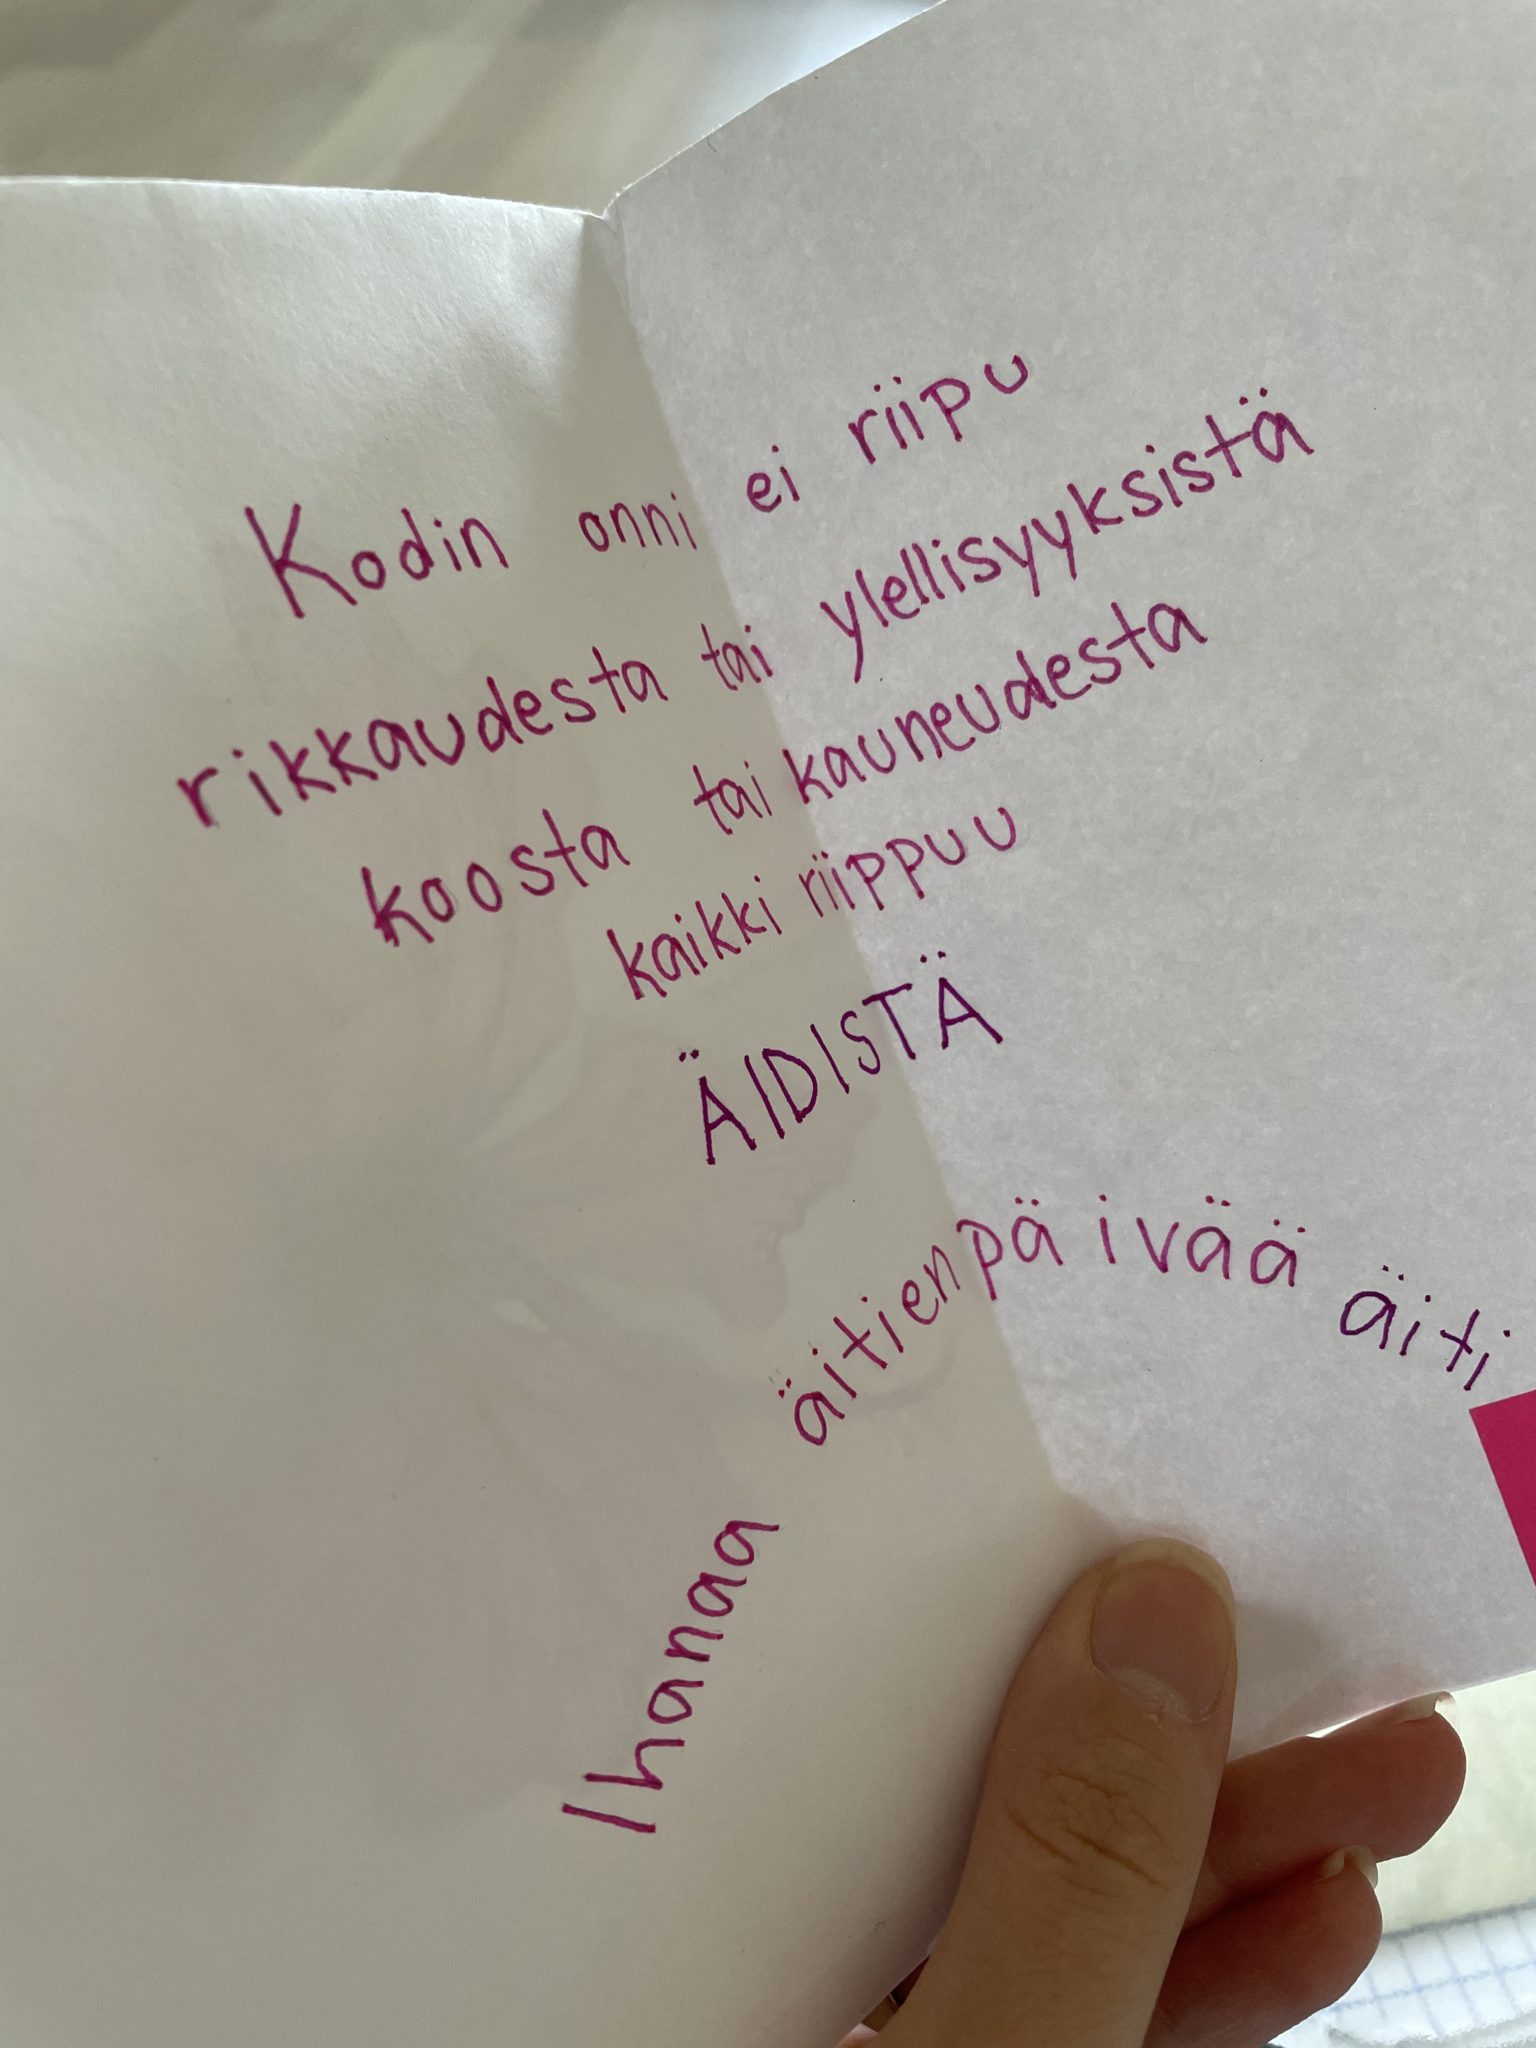 Kodin onni ei riipu
rikkaudesta tai ylellisyyksistä
koosta tai kauneudesta
kaikki riippuu
ÄIDISTÄ
Ihanaa äitienpäivää äiti